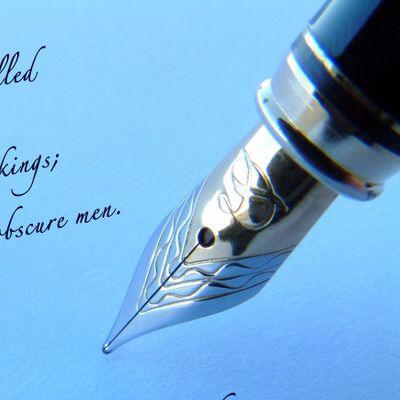 lled
kings;
obscure men.